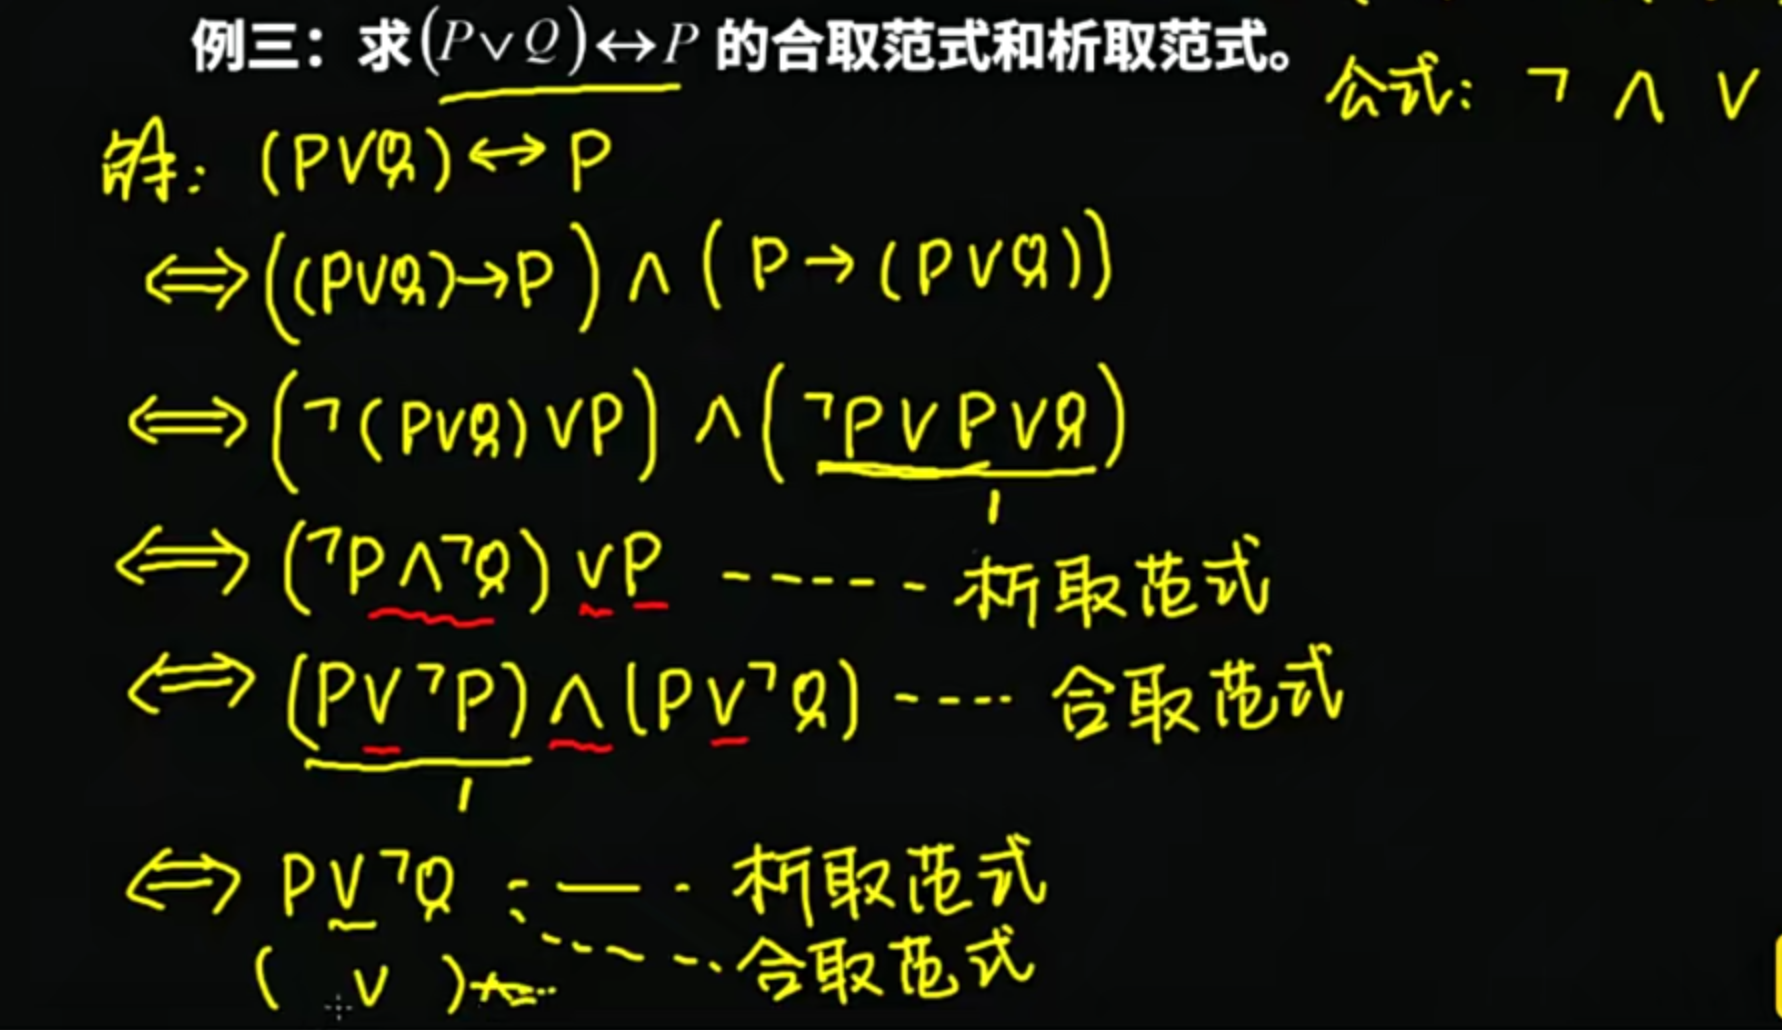 例三：求(P∨Q)↔P 的合取范式和析取范式。
公式: ¬ ∧ ∨
解: (P∨Q)↔P
⇔((P∨Q)→P)∧(P→(P∨Q))
⇔(¬(P∨Q)∨P)∧(¬P∨P∨Q)
1
⇔(¬P∧¬Q)∨P ------ 析取范式
⇔(P∨¬P)∧(P∨¬Q) ---- 合取范式
1
⇔P∨¬Q 析取范式
合取范式
( ∨ )